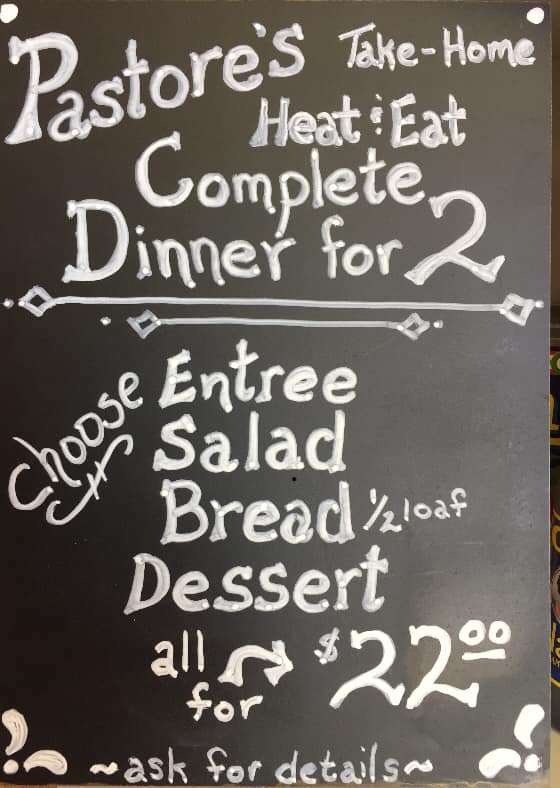 Pastore's Take-Home
Heat & Eat
Complete
Dinner for 2
Choose Entree
Salad
Bread 1/2 loaf
Dessert
all for $22.00
~ask for details~